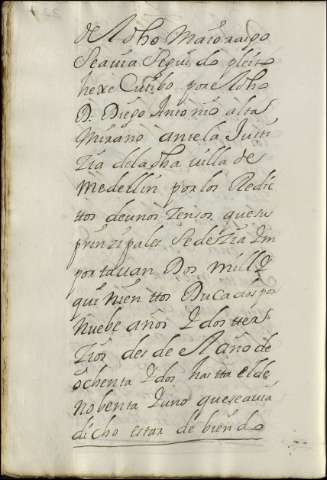 de dho Maioradgo
Seauia Seguido pleito
hexecutibo por el dho
D. Diego Antonio alta
mirano ante la Justi
zia dela dha uilla de
medellin por los Redic
ttos deunos zensos que sus
prinzipales Se dezia Ym
portauan Dos mill y
quinienttos Ducados por
Nuebe años y dos tterz
zios desde el año de
ochenta y dos hastta el de
Nobenta y uno que seauia
dicho estar debiendo